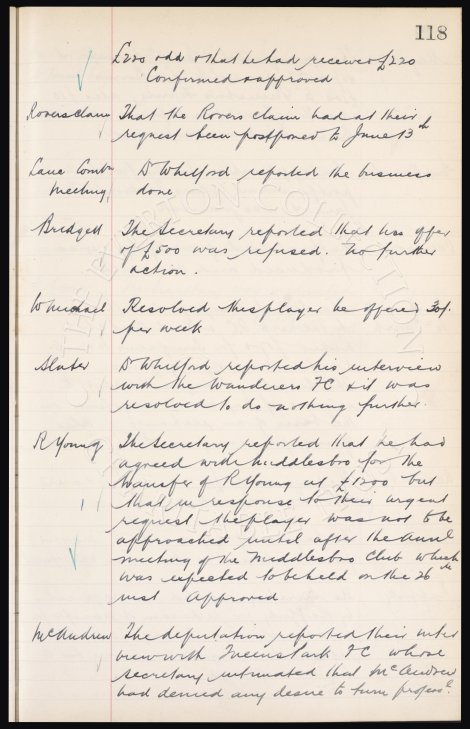 118
£220 odd & that he had received £220
Confirmed & approved
Rovers claim That the Rovers claim had at their
request been postponed to June 13th
Lanc Combn Dr Whitford reported the business
Meeting done
Bridgett The Secretary reported that his offer
of £500 was refused. No further
action.
W Michael Resolved this player be offered 30/-
per week
Slater Dr Whitford reported his interview
with the Wanderers FC & it was
resolved to do nothing further.
R Young The Secretary reported that he had
agreed with Middlesbro for the
transfer of R Young at £1200 but
that in response to their urgent
request the player was not to be
approached until after the annl
meeting of the Middlesbro Club which
was expected to be held on the 26th
inst Approved
McAndrew The deputation reported their inter
view with Queens Park FC whose
secretary intimated that McAndrew
had denied any desire to turn profesl.
THE EVERTON COLLECTION